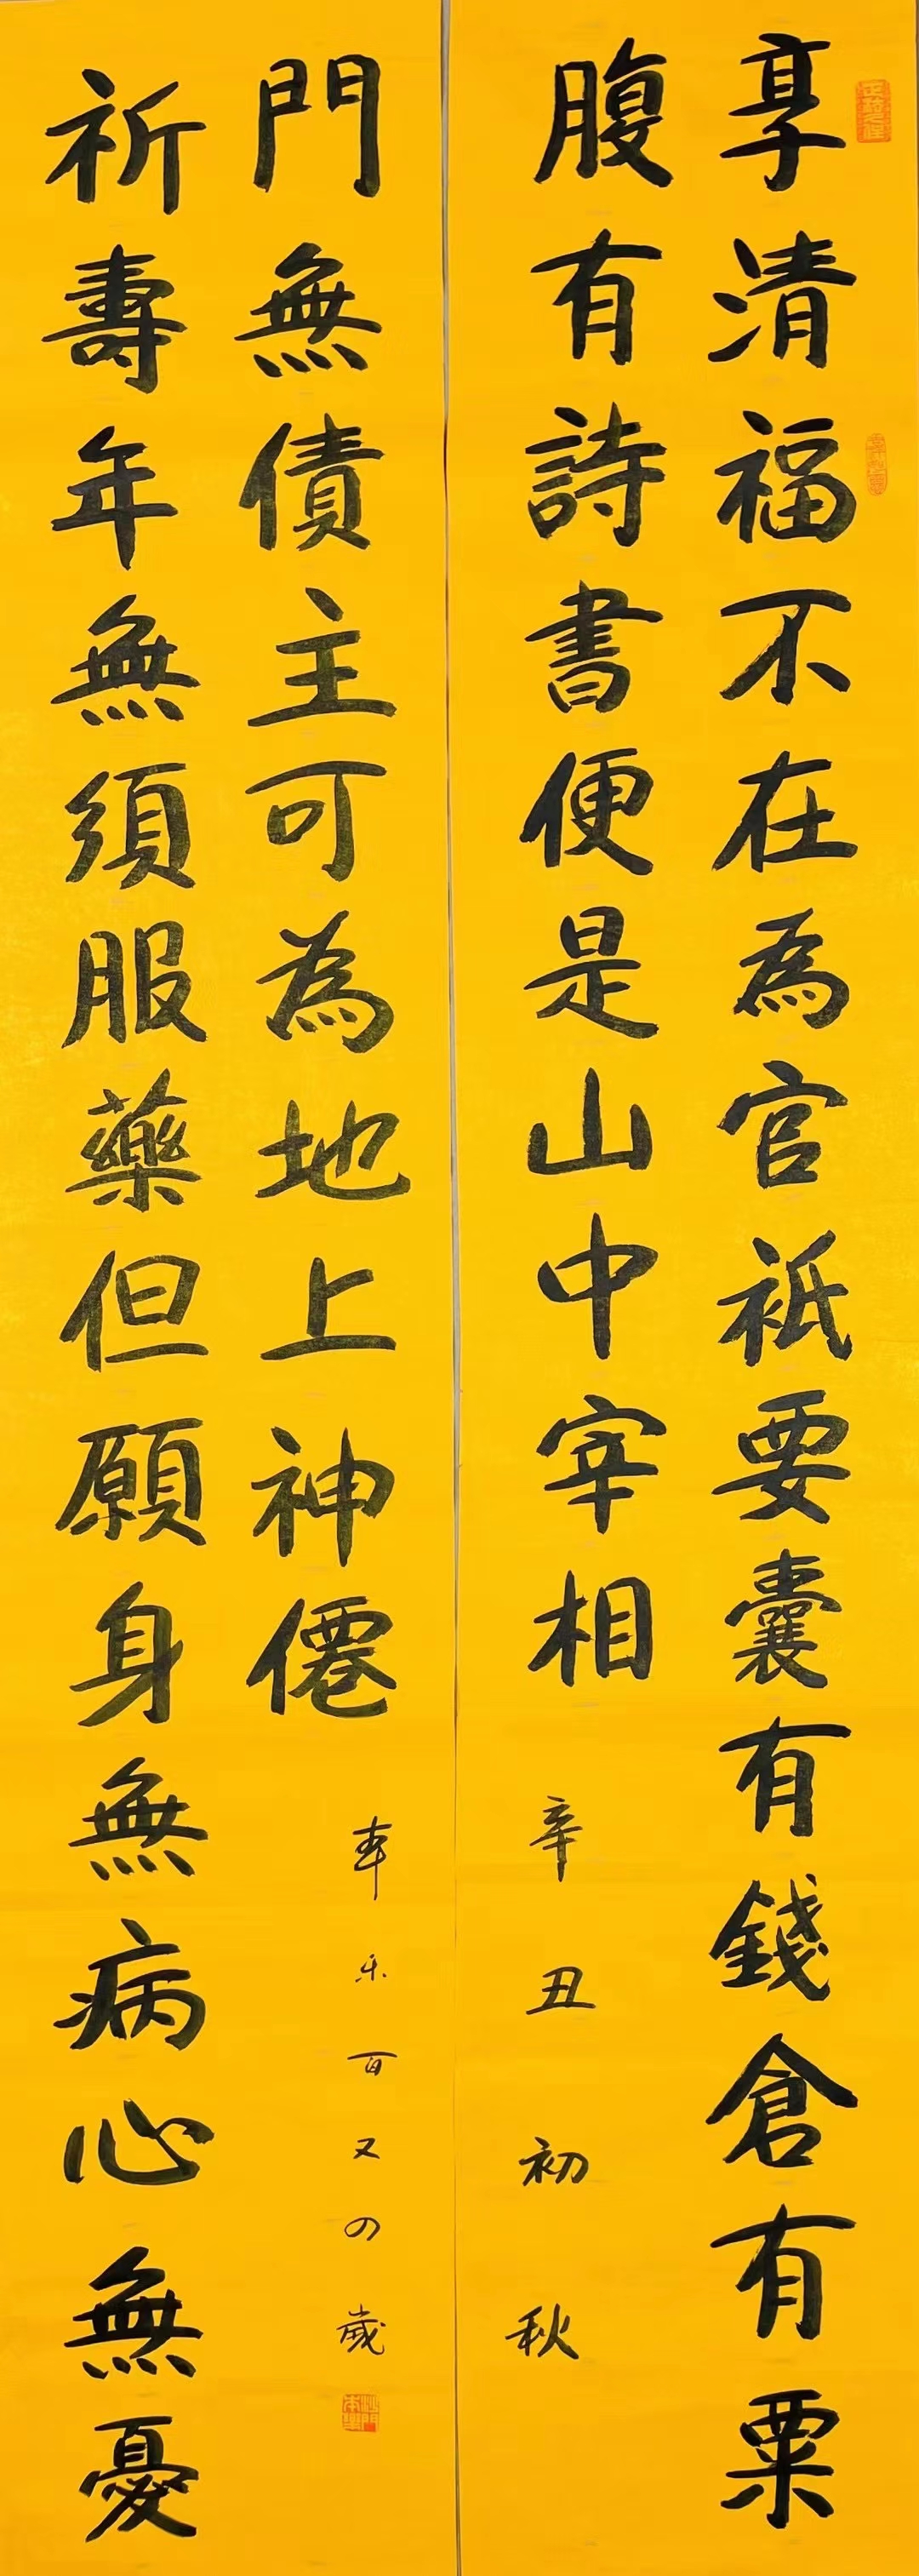 享清福不在為官祇要囊有錢倉有粟
腹有詩書便是山中宰相
辛丑初秋
祈壽年無須服藥但願身無病心無憂
門無債主可為地上神僊
本乐百又四歲
沙門本樂